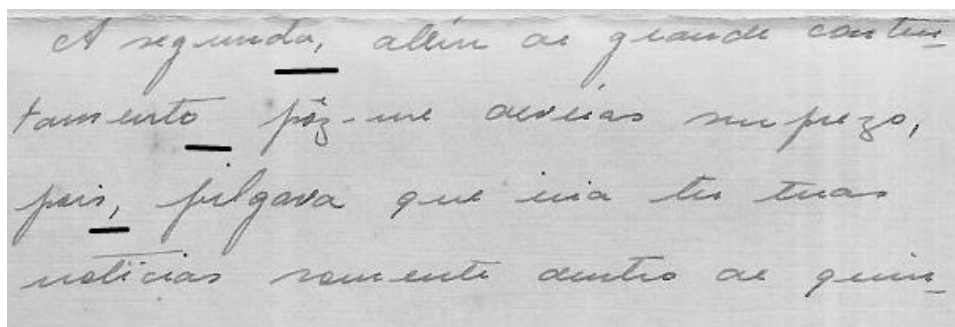 A segunda, além de grande conten-
tamento pôz-me devéras surpreza,
pois, julgava que iria ter tuas
noticias somente dentro de quin-